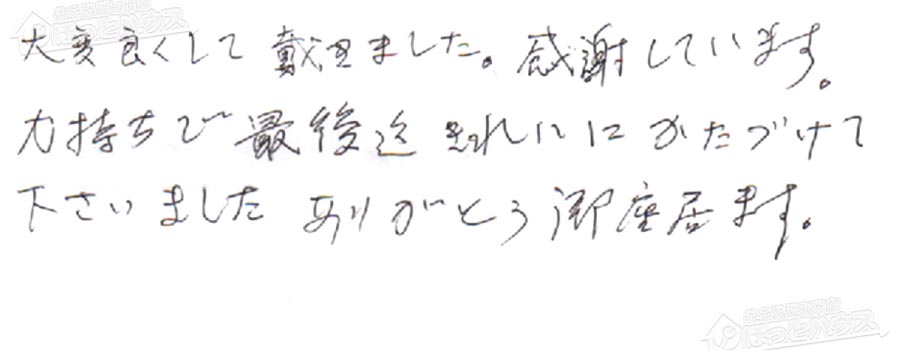 大変良くして戴きました。感謝しています。
力持ちで最後迄きれいにかたづけて
下さいましたありがとう御座居ます。
ほっとハウス
ほっとハウス